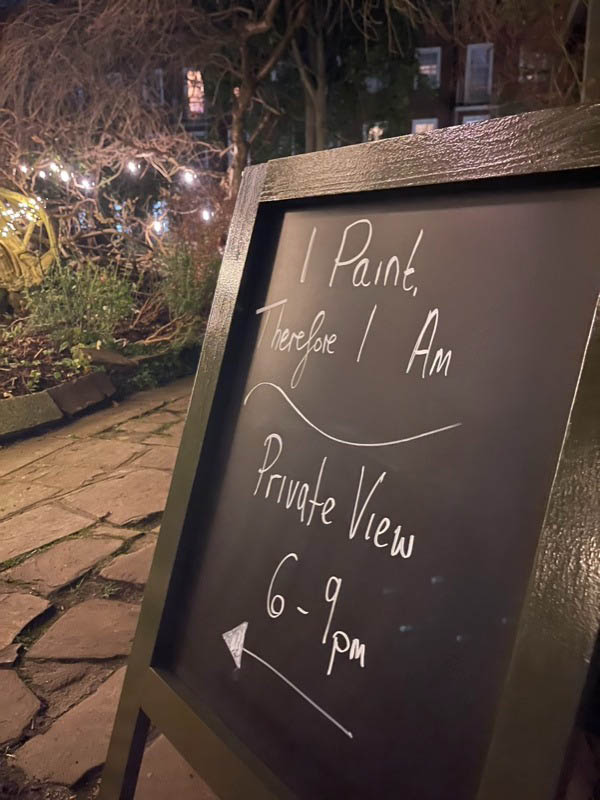 I Paint,
Therefore I Am
Private View
6-9pm